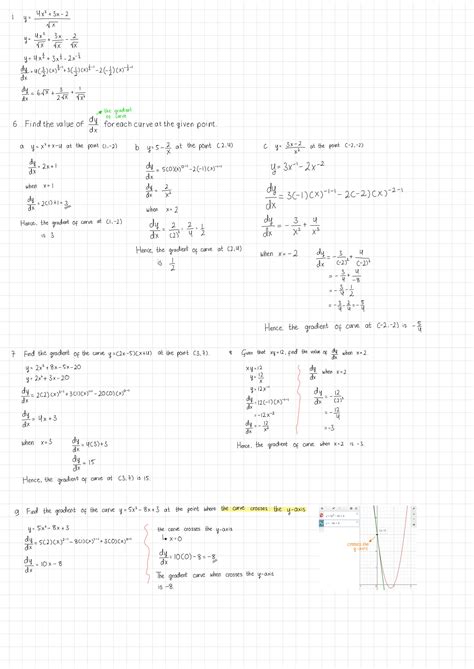 1 y = (4x² + 3x - 2)/√x
y = 4x²/√x + 3x/√x - 2/√x
dy/dx = 6√x + 3/(2√x) + 1/
6 Find the value of dy/dx for each curve at the given point.
the gradient of curve
a y = x² + x - 4 at the point (1,-2)
dy/dx = 2x + 1
when x = 1
dy/dx = 2(1) + 1 = 3
Hence, the gradient of curve at (1,-2)
is 3
b y = 5 - 2/x at the point (2,4)
dy/dx = 2/x²
when x = 2
dy/dx = 2/(2)² = 2/4 = 1/2
Hence, the gradient of curve at (2,4)
is 1/2
c y = (3x-2)/x² at the point (-2,-2)
y = 3x⁻¹ - 2x⁻²
dy/dx = 3(-1)(x)⁻¹⁻¹ - 2(-2)(x)⁻²⁻¹
dy/dx = -3/x² + 4/x³
when x = -2
dy/dx = -3/(-2)² + 4/(-2)³
= -3/4 + 4/-8
= -3/4 - 1/2
= -3/4 - 2/4 = -5/4
Hence, the gradient of curve at (-2,-2) is -5/4
7 Find the gradient of the curve y = (2x-5)(x+4) at the point (3,7).
y = 2x² + 8x - 5x - 20
y = 2x² + 3x - 20
dy/dx = 4x + 3
when x = 3
dy/dx = 4(3) + 3
dy/dx = 15
Hence, the gradient of curve at (3,7) is 15.
8 Given that xy = 12, find the value of dy/dx when x = 2
xy = 12
y = 12/x
y = 12x⁻¹
dy/dx = 12(-1)(x)⁻¹⁻¹
= -12x⁻²
dy/dx = -12/x²
dy/dx when x = 2
dy/dx = -12/(2)²
= -12/4
= -3
Hence, the gradient of curve when x = 2 is -3
9 Find the gradient of the curve y = 5x² - 8x + 3 at the point where the curve crosses the y-axis
y = 5x² - 8x + 3
dy/dx = 10x - 8
the curve crosses the y-axis
↳ x = 0
dy/dx = 10(0) - 8 = -8
The gradient curve when crosses the y-axis
is -8.
crosses the
y-axis